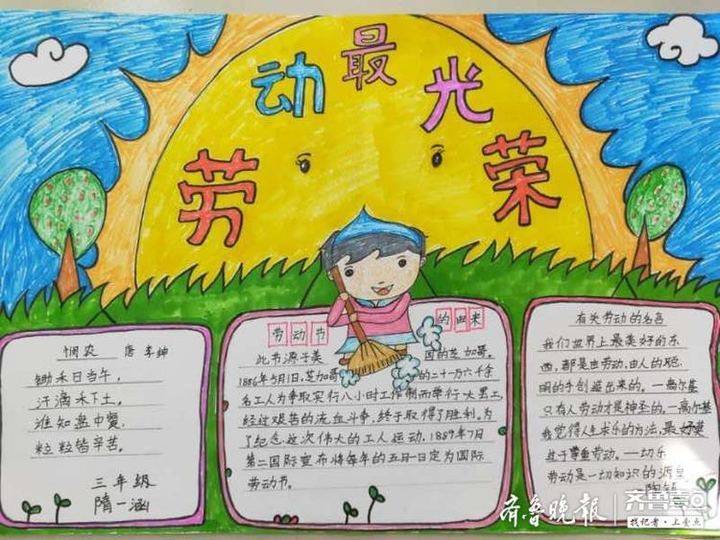 劳动最光荣
悯农 唐 李绅
锄禾日当午，
汗滴禾下土，
谁知盘中餐，
粒粒皆辛苦。
三年级
隋一涵
劳动节的由来
此节源于美国的芝加哥。
1886年5月1日，芝加哥的二十一万六千余
名工人为争取实行八小时工作制而举行大罢工，
经过艰苦的流血斗争，终于取得了胜利。为
了纪念这次伟大的工人运动，1889年7月
第二国际宣布将每年的五月一日定为国际
劳动节。
有关劳动的名言
我们世界上最美好的东
西，都是由劳动、由人的聪
明的手创造出来的。—高尔基
只有人劳动才是神圣的。—高尔基
我觉得人生求乐的方法，最好莫
过于尊重劳动。一切乐
劳动是一切知识的源泉
—陶铸
齐鲁晚报
齐鲁壹点
找记者·上壹点